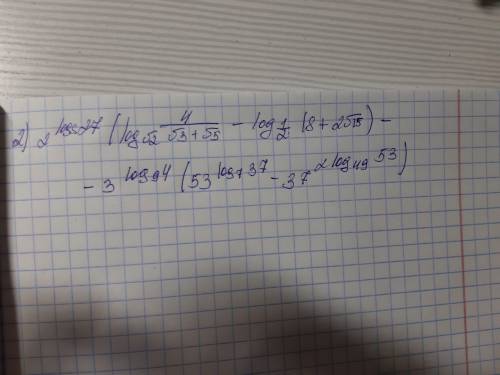 2) 2^{log_8 27} (log_{√2} \frac{4}{√3+√5} - log_{\frac{1}{2}} (8+2√15)) -
- 3^{log_9 4} (53^{log_7 37} - 37^{2 log_{49} 53})